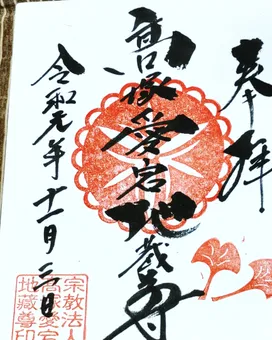 奉拝
髙塚愛宕地蔵尊
令和元年十一月三日
宗教法人
髙塚愛宕
地蔵尊印